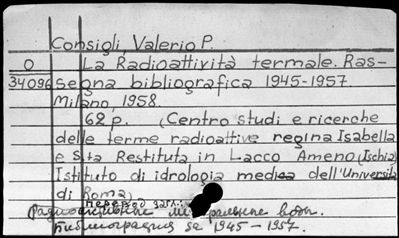 Consigli, Valerio P.
O La Radioattività termale. Ras-
34096 segna bibliografica 1945-1957.
Milano, 1958.
62 p. (Centro studi e ricerche
delle terme radioattive regina Isabella
e S.ta Restituta in Lacco Ameno (Ischia)
Istituto di idrologia medica dell'Università
di Roma)
перевод загл.:
Радиоактивные минеральные воды.
Библиография за 1945-1957.